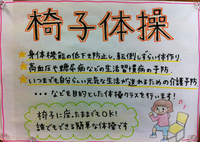 椅子体操
★身体機能の低下を防止し、転倒しずらい体作り
★高血圧や糖尿病などの生活習慣病の予防
★いつまでも自分らしい元気な生活が送れるための介護予防
…などを目的とした体操クラスを行います!
椅子に座ったままでもOK!
誰でもできる簡単な体操です